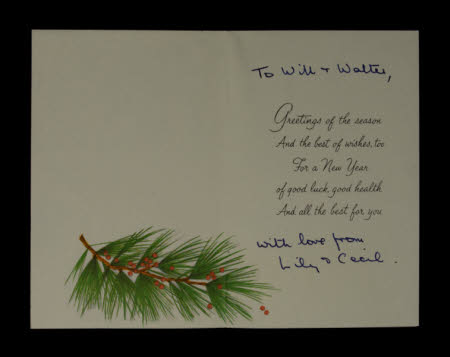 To Will + Walter,
Greetings of the season
And the best of wishes, too
For a New Year
of good luck, good health
And all the best for you
with love from
Lily & Cecil.